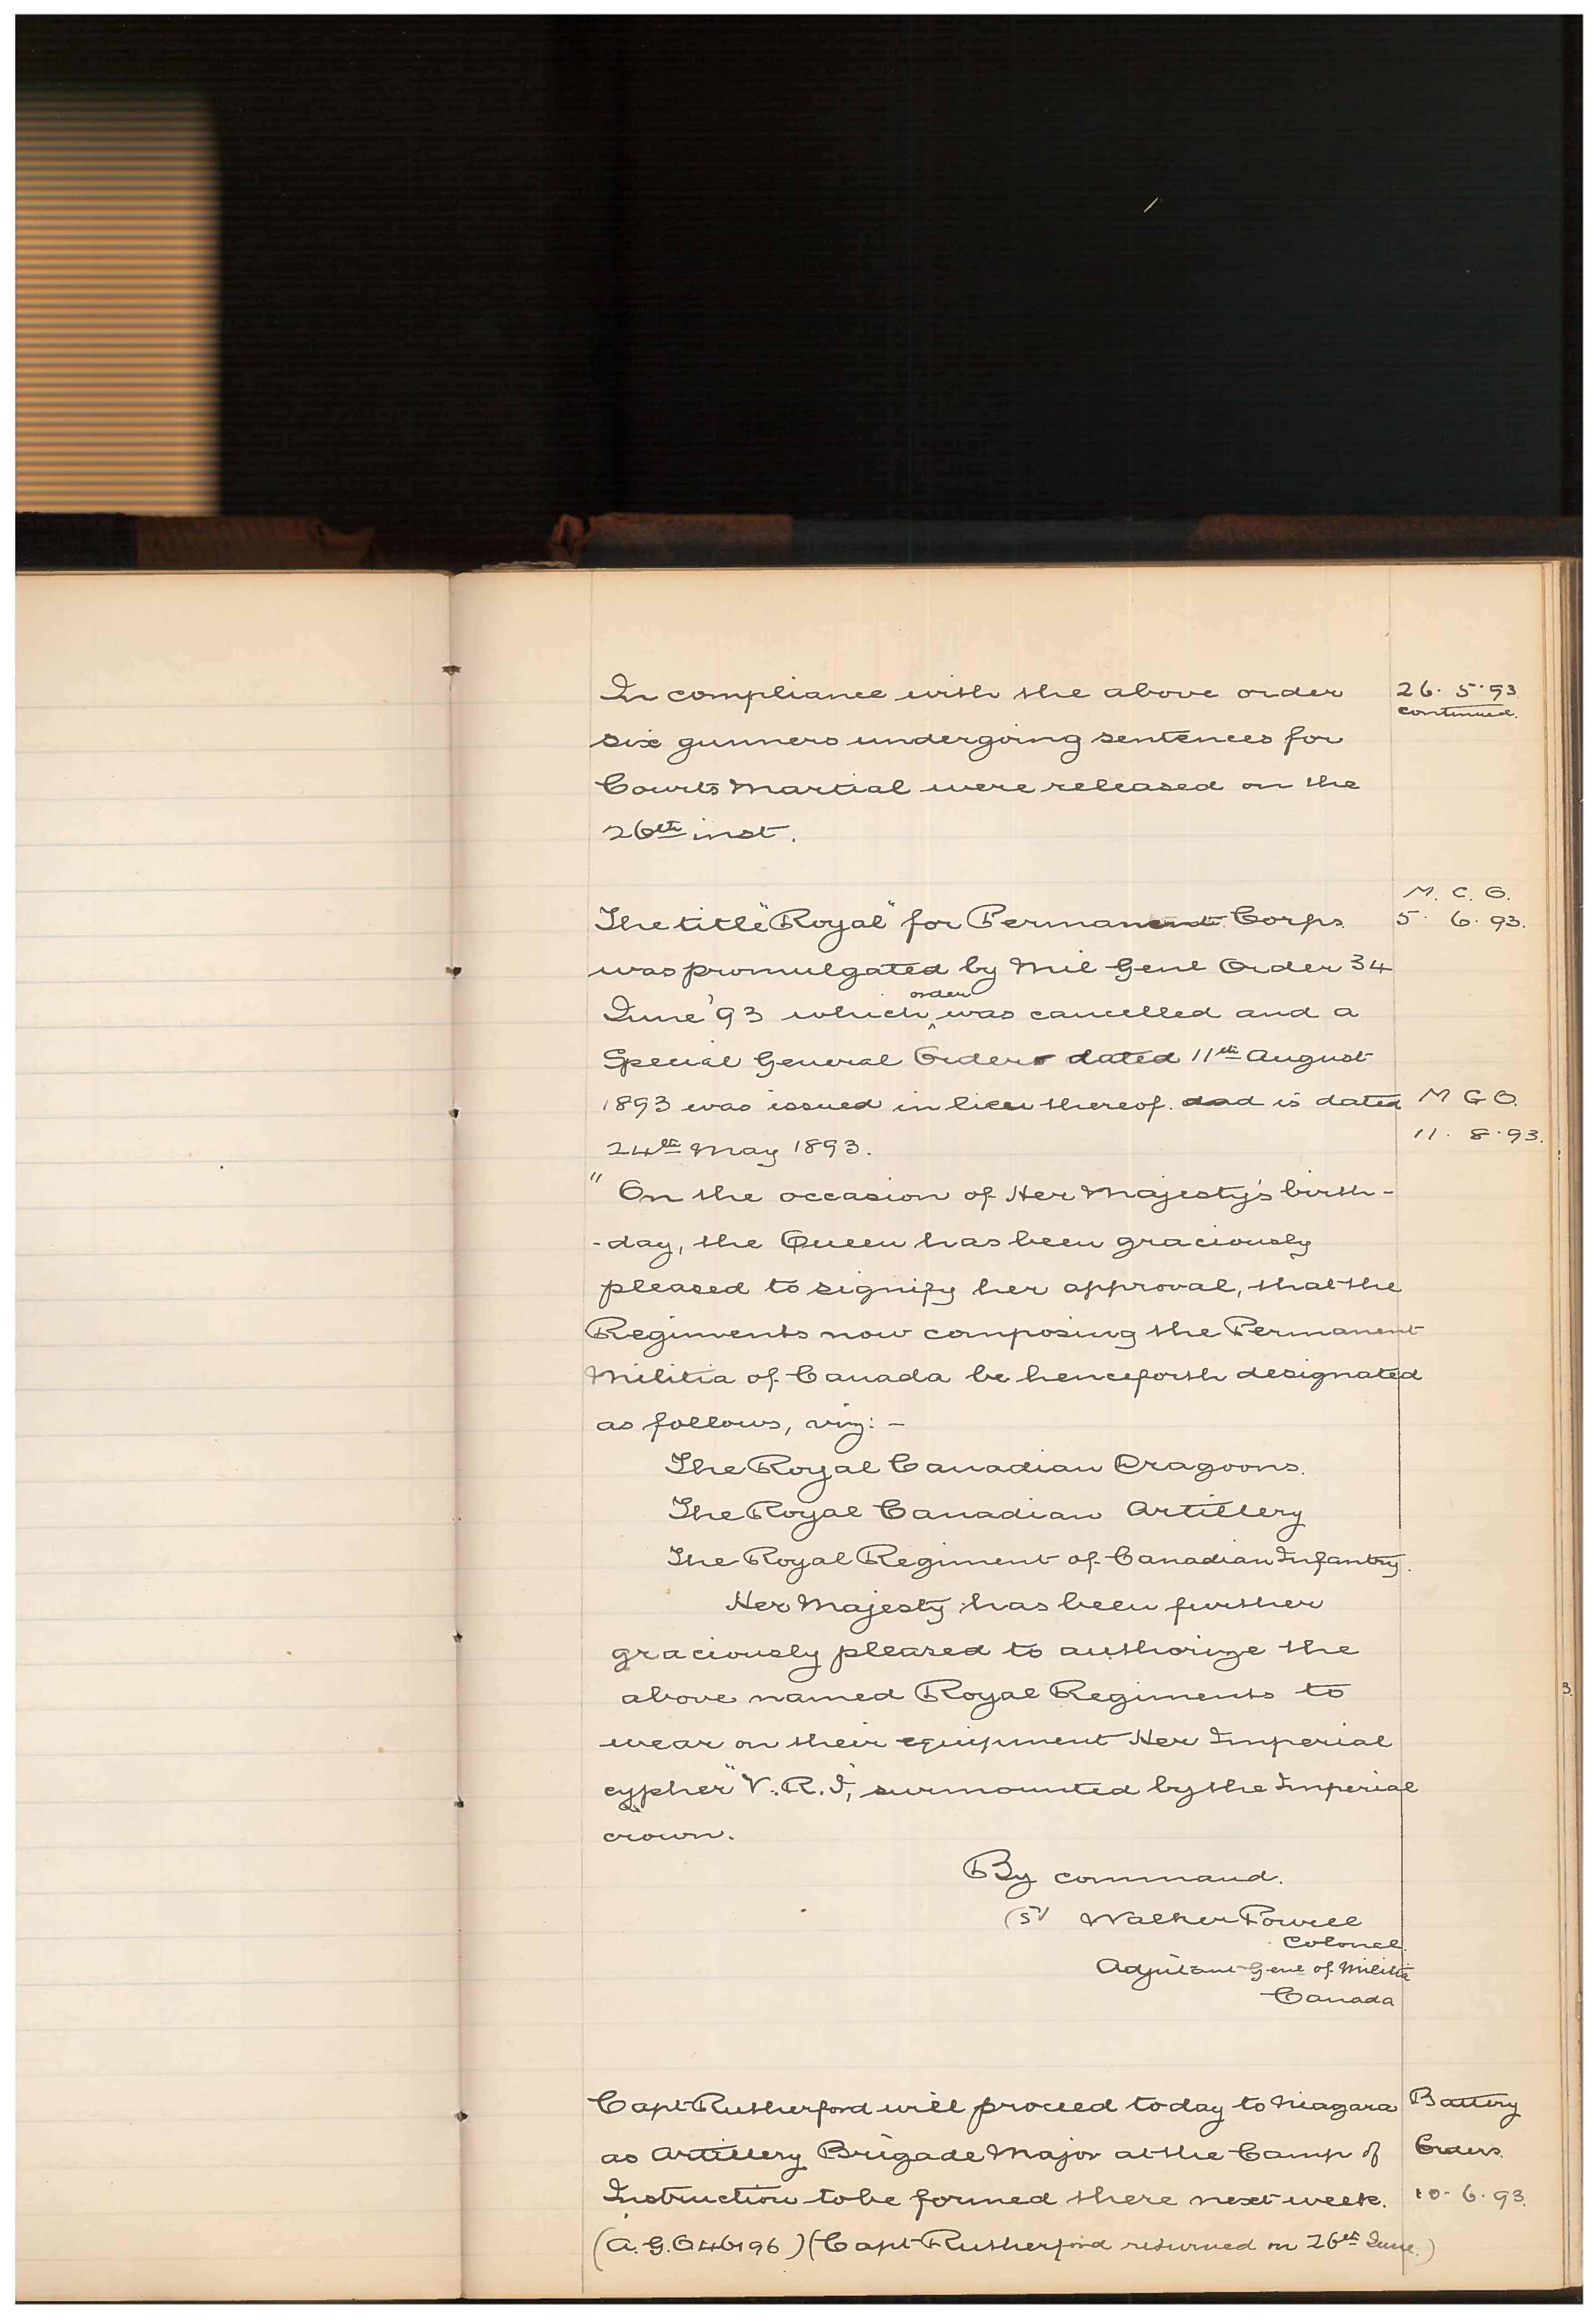 In compliance with the above order
26. 5. 93
continued.
six gunners undergoing sentences for
Courts Martial were released on the
26th inst.
M. C. O.
The title "Royal" for Permanent Corps
5. 6. 93.
was promulgated by Mil Genl Order 34
order
June '93 which ^ was cancelled and a
Special General Order dated 11th August
1893 was issued in lieu thereof. and is dated
M G O.
11. 8. 93.
24th May 1893.
" On the occasion of Her Majesty's birth-
-day, the Queen has been graciously
pleased to signify her approval, that the
Regiments now composing the Permanent
Militia of Canada be henceforth designated
as follows, viz: -
The Royal Canadian Dragoons.
The Royal Canadian Artillery
The Royal Regiment of Canadian Infantry.
Her Majesty has been further
graciously pleased to authorize the
above named Royal Regiments to
wear on their equipment Her Imperial
cypher "V. R. I," surmounted by the Imperial
crown.
By command.
(sd) Walker Powell
Colonel.
Adjutant Genl of Militia
Canada
Capt Rutherford will proceed today to Niagara
Battery
as Artillery Brigade Major at the Camp of
Orders.
Instruction to be formed there next week.
10. 6. 93.
(A. G. O 46196) (Capt Rutherford returned on 26th June.)